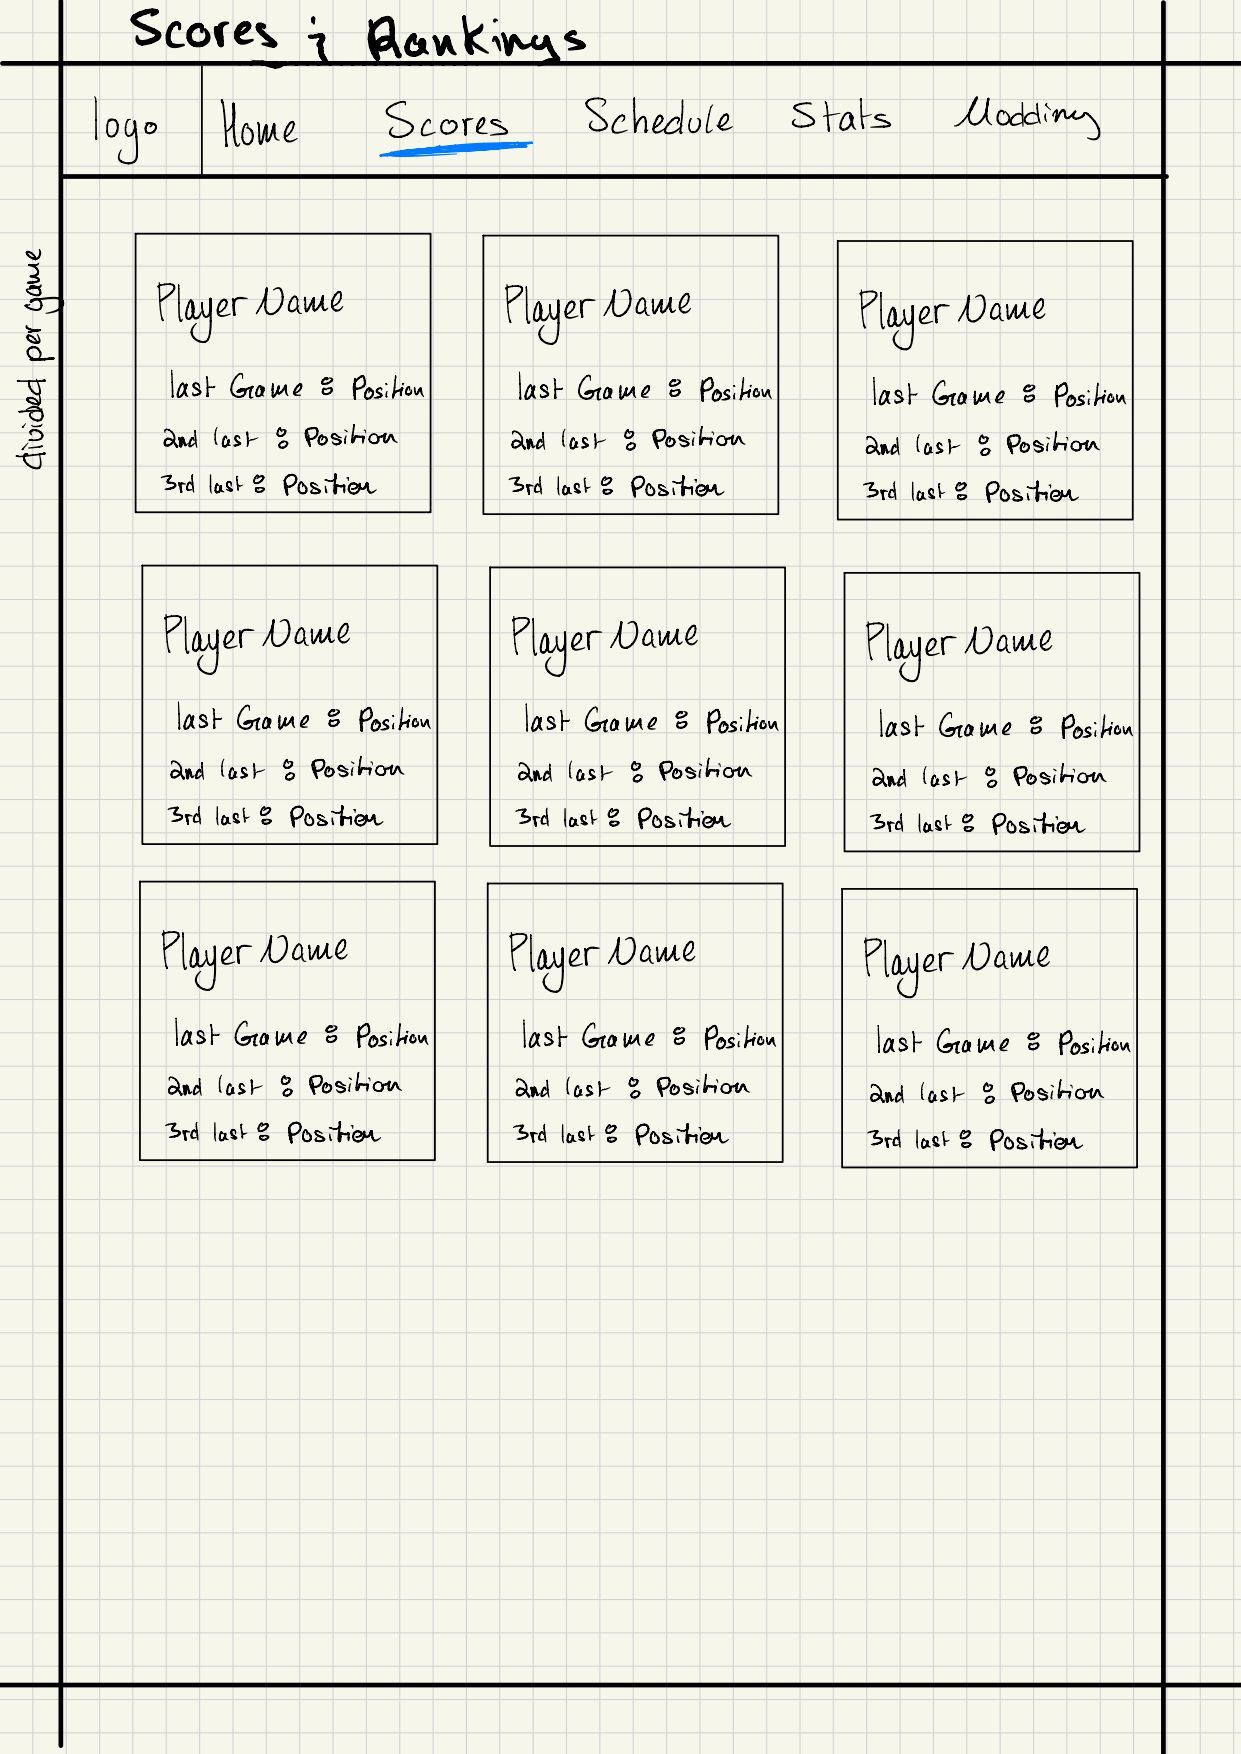 Scores & Rankings
logo Home Scores Schedule Stats Modding
divided per game
Player Name
last Game : Position
2nd last : Position
3rd last : Position
Player Name
last Game : Position
2nd last : Position
3rd last : Position
Player Name
last Game : Position
2nd last : Position
3rd last : Position
Player Name
last Game : Position
2nd last : Position
3rd last : Position
Player Name
last Game : Position
2nd last : Position
3rd last : Position
Player Name
last Game : Position
2nd last : Position
3rd last : Position
Player Name
last Game : Position
2nd last : Position
3rd last : Position
Player Name
last Game : Position
2nd last : Position
3rd last : Position
Player Name
last Game : Position
2nd last : Position
3rd last : Position